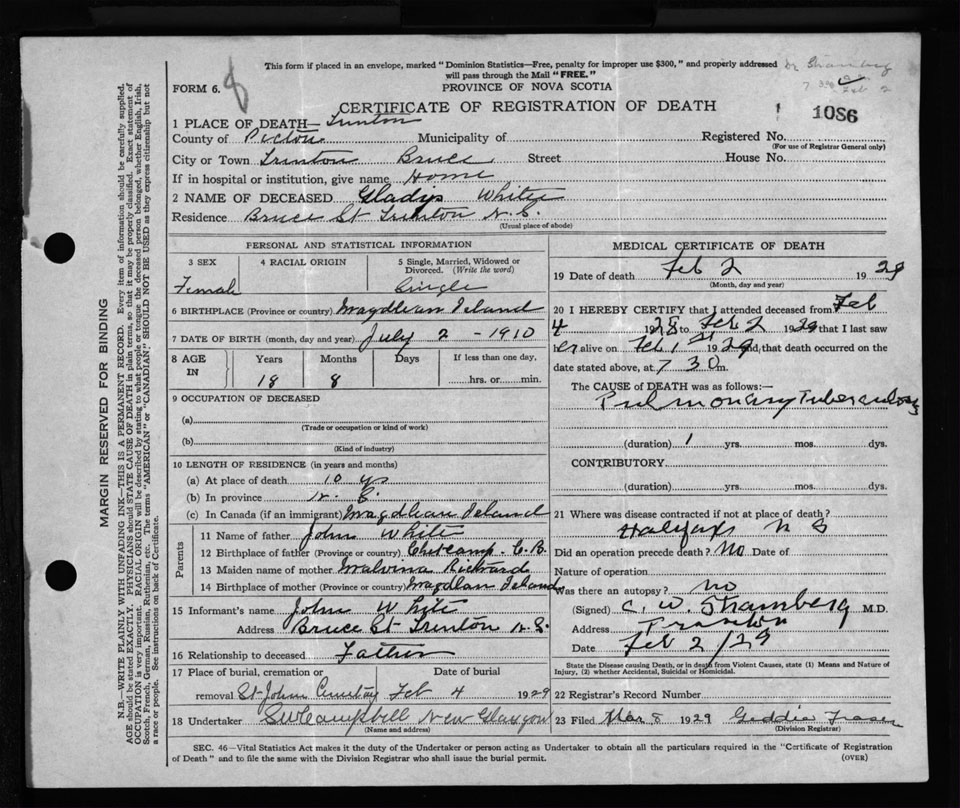 This form if placed in an envelope, marked "Dominion Statistics—Free, penalty for improper use $300," and properly addressed
will pass through the Mail "FREE."
FORM 6.
8
PROVINCE OF NOVA SCOTIA
CERTIFICATE OF REGISTRATION OF DEATH
1086
1 PLACE OF DEATH— Trenton
County of Pictou Municipality of Registered No.
(For use of Registrar General only)
City or Town Trenton Bruce Street House No.
If in hospital or institution, give name Home
2 NAME OF DECEASED Gladys White
Residence Bruce St Trenton N.S.
(Usual place of abode)
PERSONAL AND STATISTICAL INFORMATION
3 SEX 4 RACIAL ORIGIN 5 Single, Married, Widowed or
Divorced. (Write the word)
Female Single
6 BIRTHPLACE (Province or country) Magdlian Island
7 DATE OF BIRTH (month, day and year) July 2 - 1910
8 AGE IN Years Months Days If less than one day,
18 8 hrs. or min.
9 OCCUPATION OF DECEASED
(a)
(Trade or occupation or kind of work)
(b)
(Kind of industry)
10 LENGTH OF RESIDENCE (in years and months)
(a) At place of death 10 ys
(b) In province
(c) In Canada (if an immigrant) Magdlian Island
Parents
11 Name of father John White
12 Birthplace of father (Province or country) Chetcamp. C.B.
13 Maiden name of mother Malvina Richard
14 Birthplace of mother (Province or country) Magdlan Island
15 Informant's name John White
Address Bruce St Trenton N.S.
16 Relationship to deceased Father
17 Place of burial, cremation or Date of burial
removal St Johns Cemetay Feb 4 1929
18 Undertaker SW Campbell New Glasgow
(Name and address)
MEDICAL CERTIFICATE OF DEATH
19 Date of death Feb 2 1929
(Month, day and year)
20 I HEREBY CERTIFY that I attended deceased from Feb
4 1928 to Feb 2 1929 that I last saw
her alive on Feb 1st 1929 and, that death occurred on the
date stated above, at 7 30 m.
The CAUSE of DEATH was as follows:—
Pulmonary Tuberculosis
(duration) 1 yrs. mos. dys.
CONTRIBUTORY
(duration) yrs. mos. dys.
21 Where was disease contracted if not at place of death?
Halifax N S
Did an operation precede death? No Date of
Nature of operation
Was there an autopsy? no
(Signed) C. W. M.D.
Address Trenton
Date Feb 2/29
State the Disease causing Death, or in death from Violent Causes, state (1) Means and Nature of
Injury, (2) whether Accidental, Suicidal or Homicidal.
22 Registrar's Record Number
23 Filed Mar 8 1929 Geddie Fraser
(Division Registrar)
SEC. 46—Vital Statistics Act makes it the duty of the Undertaker or person acting as Undertaker to obtain all the particulars required in the "Certificate of Registration
of Death" and to file the same with the Division Registrar who shall issue the burial permit.
(OVER)
MARGIN RESERVED FOR BINDING
N.B.—WRITE PLAINLY WITH UNFADING INK—THIS IS A PERMANENT RECORD. Every item of information should be carefully supplied.
AGE should be stated EXACTLY. PHYSICIANS should STATE CAUSE OF DEATH in plain terms, so that it may be properly classified. Exact statement of
OCCUPATION is very important. RACIAL ORIGIN will be described by stating to what people or tongue the deceased person belonged, whether English, Irish,
Scotch, French, German, Russian, Ruthenian, etc. The terms "AMERICAN" or "CANADIAN" SHOULD NOT BE USED as they express citizenship but not
a race or people. See instructions on back of Certificate.